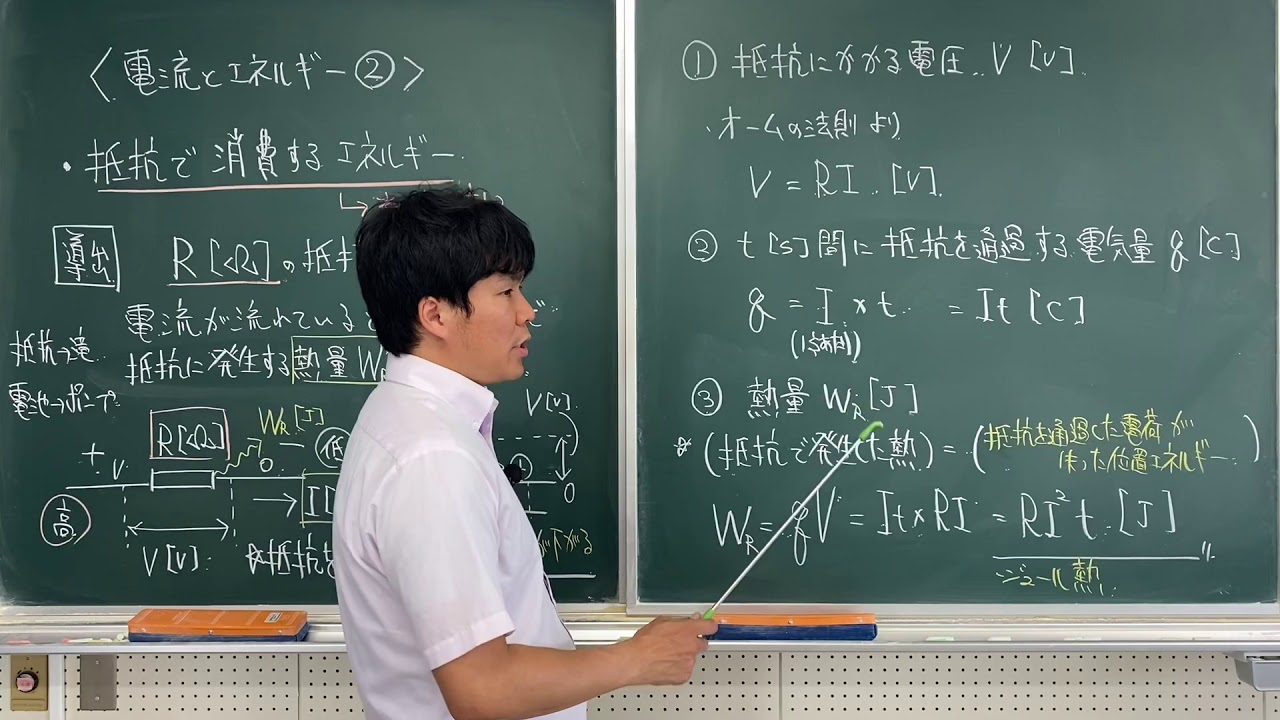 〈電流とエネルギー②〉
・抵抗で消費するエネルギー
導出 R[Ω]の抵
電流が流れている
抵抗に発生する熱量WR
抵抗→滝
電池→ポンプ
R[Ω]
WR[J]
+ V
0
低
高
V[V]
I[
抵抗を
V[V]
①
0
が下がる
① 抵抗にかかる電圧 V[V]
・オームの法則より
V = RI [V]
② t[s]間に抵抗を通過する電気量 q[C]
q = I × t = It [C]
(1s間)
③ 熱量 WR[J]
(抵抗で発生した熱) = (抵抗を通過した電荷が
失った位置エネルギー)
WR = qV = It × RI = RI²t [J]
ジュール熱